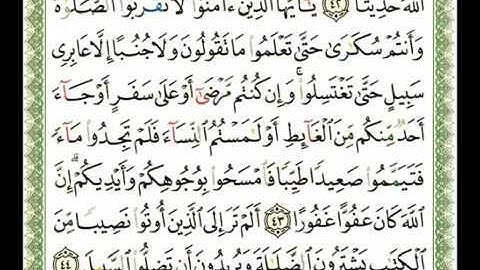 ٱللَّهَ حَدِيثًا ٤٢ يَٰٓأَيُّهَا ٱلَّذِينَ ءَامَنُوا۟ لَا تَقْرَبُوا۟ ٱلصَّلَوٰةَ
وَأَنتُمْ سُكَٰرَىٰ حَتَّىٰ تَعْلَمُوا۟ مَا تَقُولُونَ وَلَا جُنُبًا إِلَّا عَابِرِى
سَبِيلٍ حَتَّىٰ تَغْتَسِلُوا۟ ۚ وَإِن كُنتُم مَّرْضَىٰٓ أَوْ عَلَىٰ سَفَرٍ أَوْ جَآءَ
أَحَدٌ مِّنكُم مِّنَ ٱلْغَآئِطِ أَوْ لَٰمَسْتُمُ ٱلنِّسَآءَ فَلَمْ تَجِدُوا۟ مَآءً
فَتَيَمَّمُوا۟ صَعِيدًا طَيِّبًا فَٱمْسَحُوا۟ بِوُجُوهِكُمْ وَأَيْدِيكُمْ ۗ إِنَّ
ٱللَّهَ كَانَ عَفُوًّا غَفُورًا ٤٣ أَلَمْ تَرَ إِلَى ٱلَّذِينَ أُوتُوا۟ نَصِيبًا مِّنَ
ٱلْكِتَٰبِ يَشْتَرُونَ ٱلضَّلَٰلَةَ وَيُرِيدُونَ أَن تَضِلُّوا۟ ٱلسَّبِيلَ ٤٤